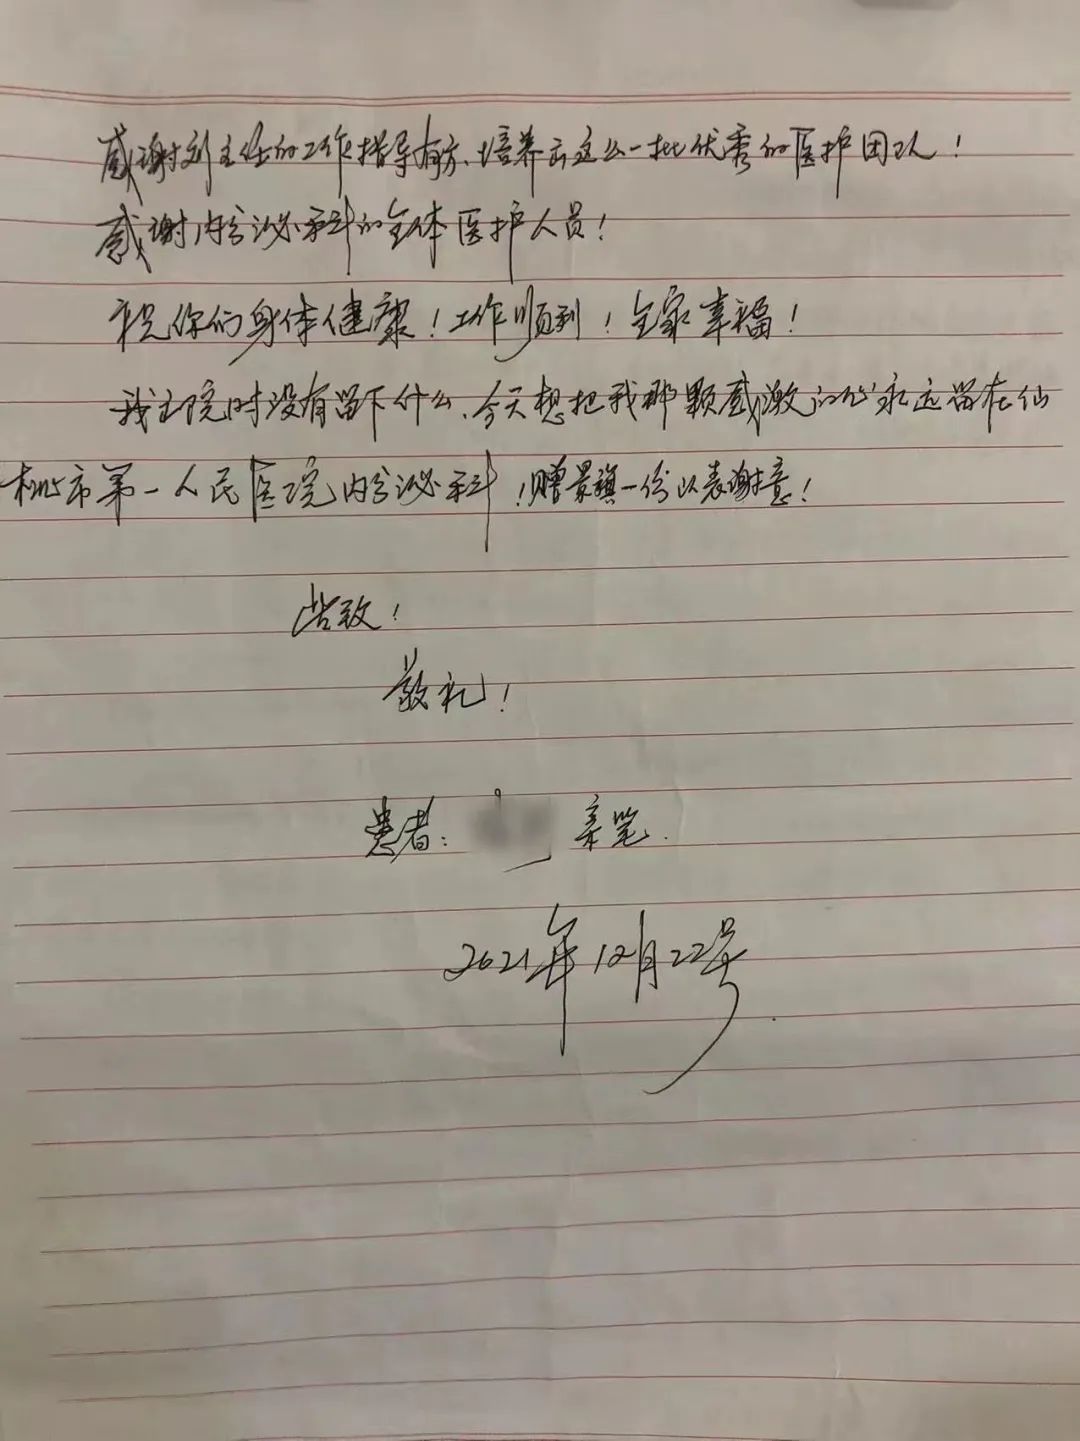 感谢刘主任的工作指导有方、培养出这么一批优秀的医护团队！
感谢内分泌科的全体医护人员！
祝你们身体健康！工作顺利！全家幸福！
我出院时没有留下什么、今天想把我那颗感激的心永远留在仙
桃市第一人民医院内分泌科！赠景旗一份以表谢意！
此致！
敬礼！
患者：亲笔.
2021年12月22号